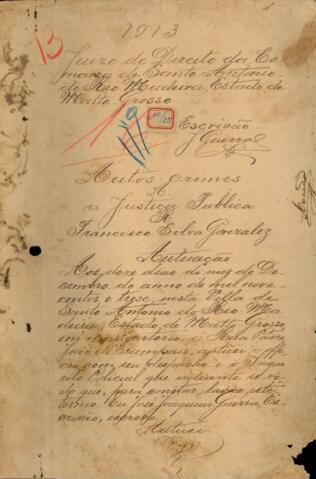 1913
13
Juizo de Direito da Co-
marca de Santo Antonio
do Rio Madeira, Estado de
Matto Grosso
19
10/25
Escrivão
J Guerra
Autos crimes
A
a Justiça Publica
R
Francisco Silva Gonzalez
Autuação
Aos doze dias do mez de De-
zembro do anno de mil nove-
centos e treze, nesta Villa de
Santo Antonio do Rio Ma-
deira, Estado de Matto Grosso,
em meu cartorio, a Rua
João de Sampaio, autuei o
com seu despacho e o Inque-
rito Policial que adiante se vê
do que, para constar, lavro este
termo. Eu José Joaquim Guerra, Es-
crivão, escrevi
Autuei